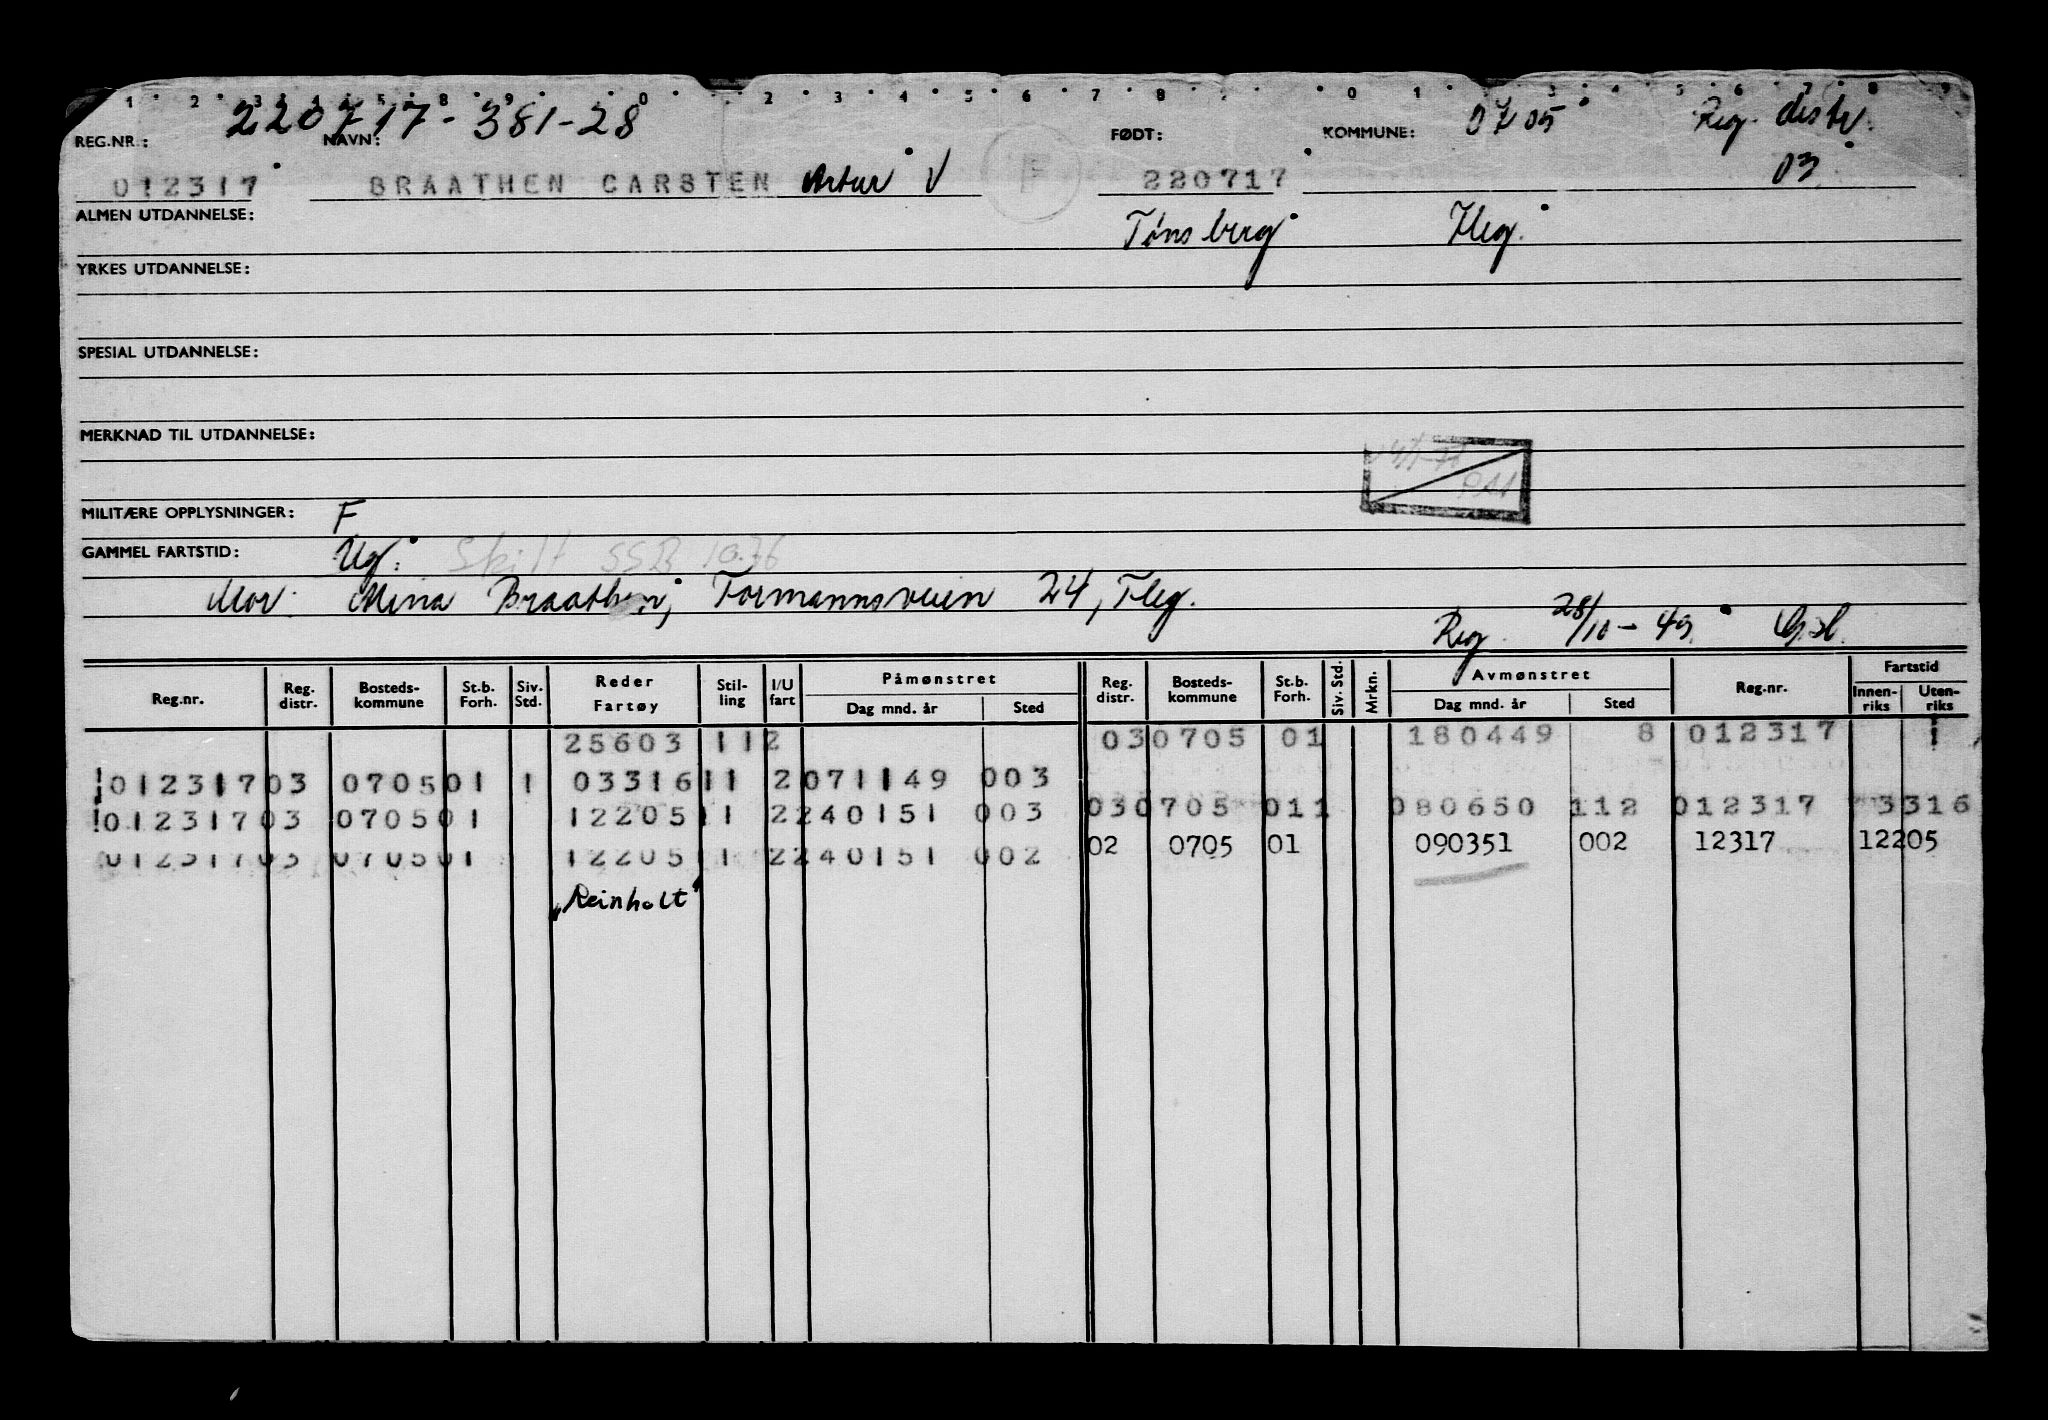 1 2 3 4 5 8 9 0 2 3 4 5 6 7 8 0 1 3 5 6 7 8 9
220717-381-28 0705 Reg. distr.
REG.NR.: NAVN: FØDT: KOMMUNE: 03
012317 BRAATHEN CARSTEN Artur V F 220717
ALMEN UTDANNELSE: Tønsberg Tbg.
YRKES UTDANNELSE:
SPESIAL UTDANNELSE:
MERKNAD TIL UTDANNELSE:
MILITÆRE OPPLYSNINGER: F
GAMMEL FARTSTID: Ug. Skilt SSB 10.76
Mor: Mina Braathen, Formannsveien 24, Tbg.
Reg. 28/10-49.
Reg.nr. Reg. distr. Bosteds-kommune St.b. Forh. Siv. Std. Reder Fartøy Stil-ling I/U fart Påmønstret Dag mnd. år Sted Reg. distr. Bosteds-kommune St.b. Forh. Siv. Std. Mrkn. Avmønstret Dag mnd. år Sted Reg.nr. Fartstid Innen-riks Uten-riks
25603 11 2 03 0705 01 180449 8 012317 !
!012317 03 0705 01 1 03316 11 2 071149 003
!012317 03 0705 01 12205 11 2 240151 003 03 0705 01 1 080650 112 012317 3316
012317 03 0705 01 12205 11 2 240151 002 02 0705 01 090351 002 12317 12205
„Reinholt"